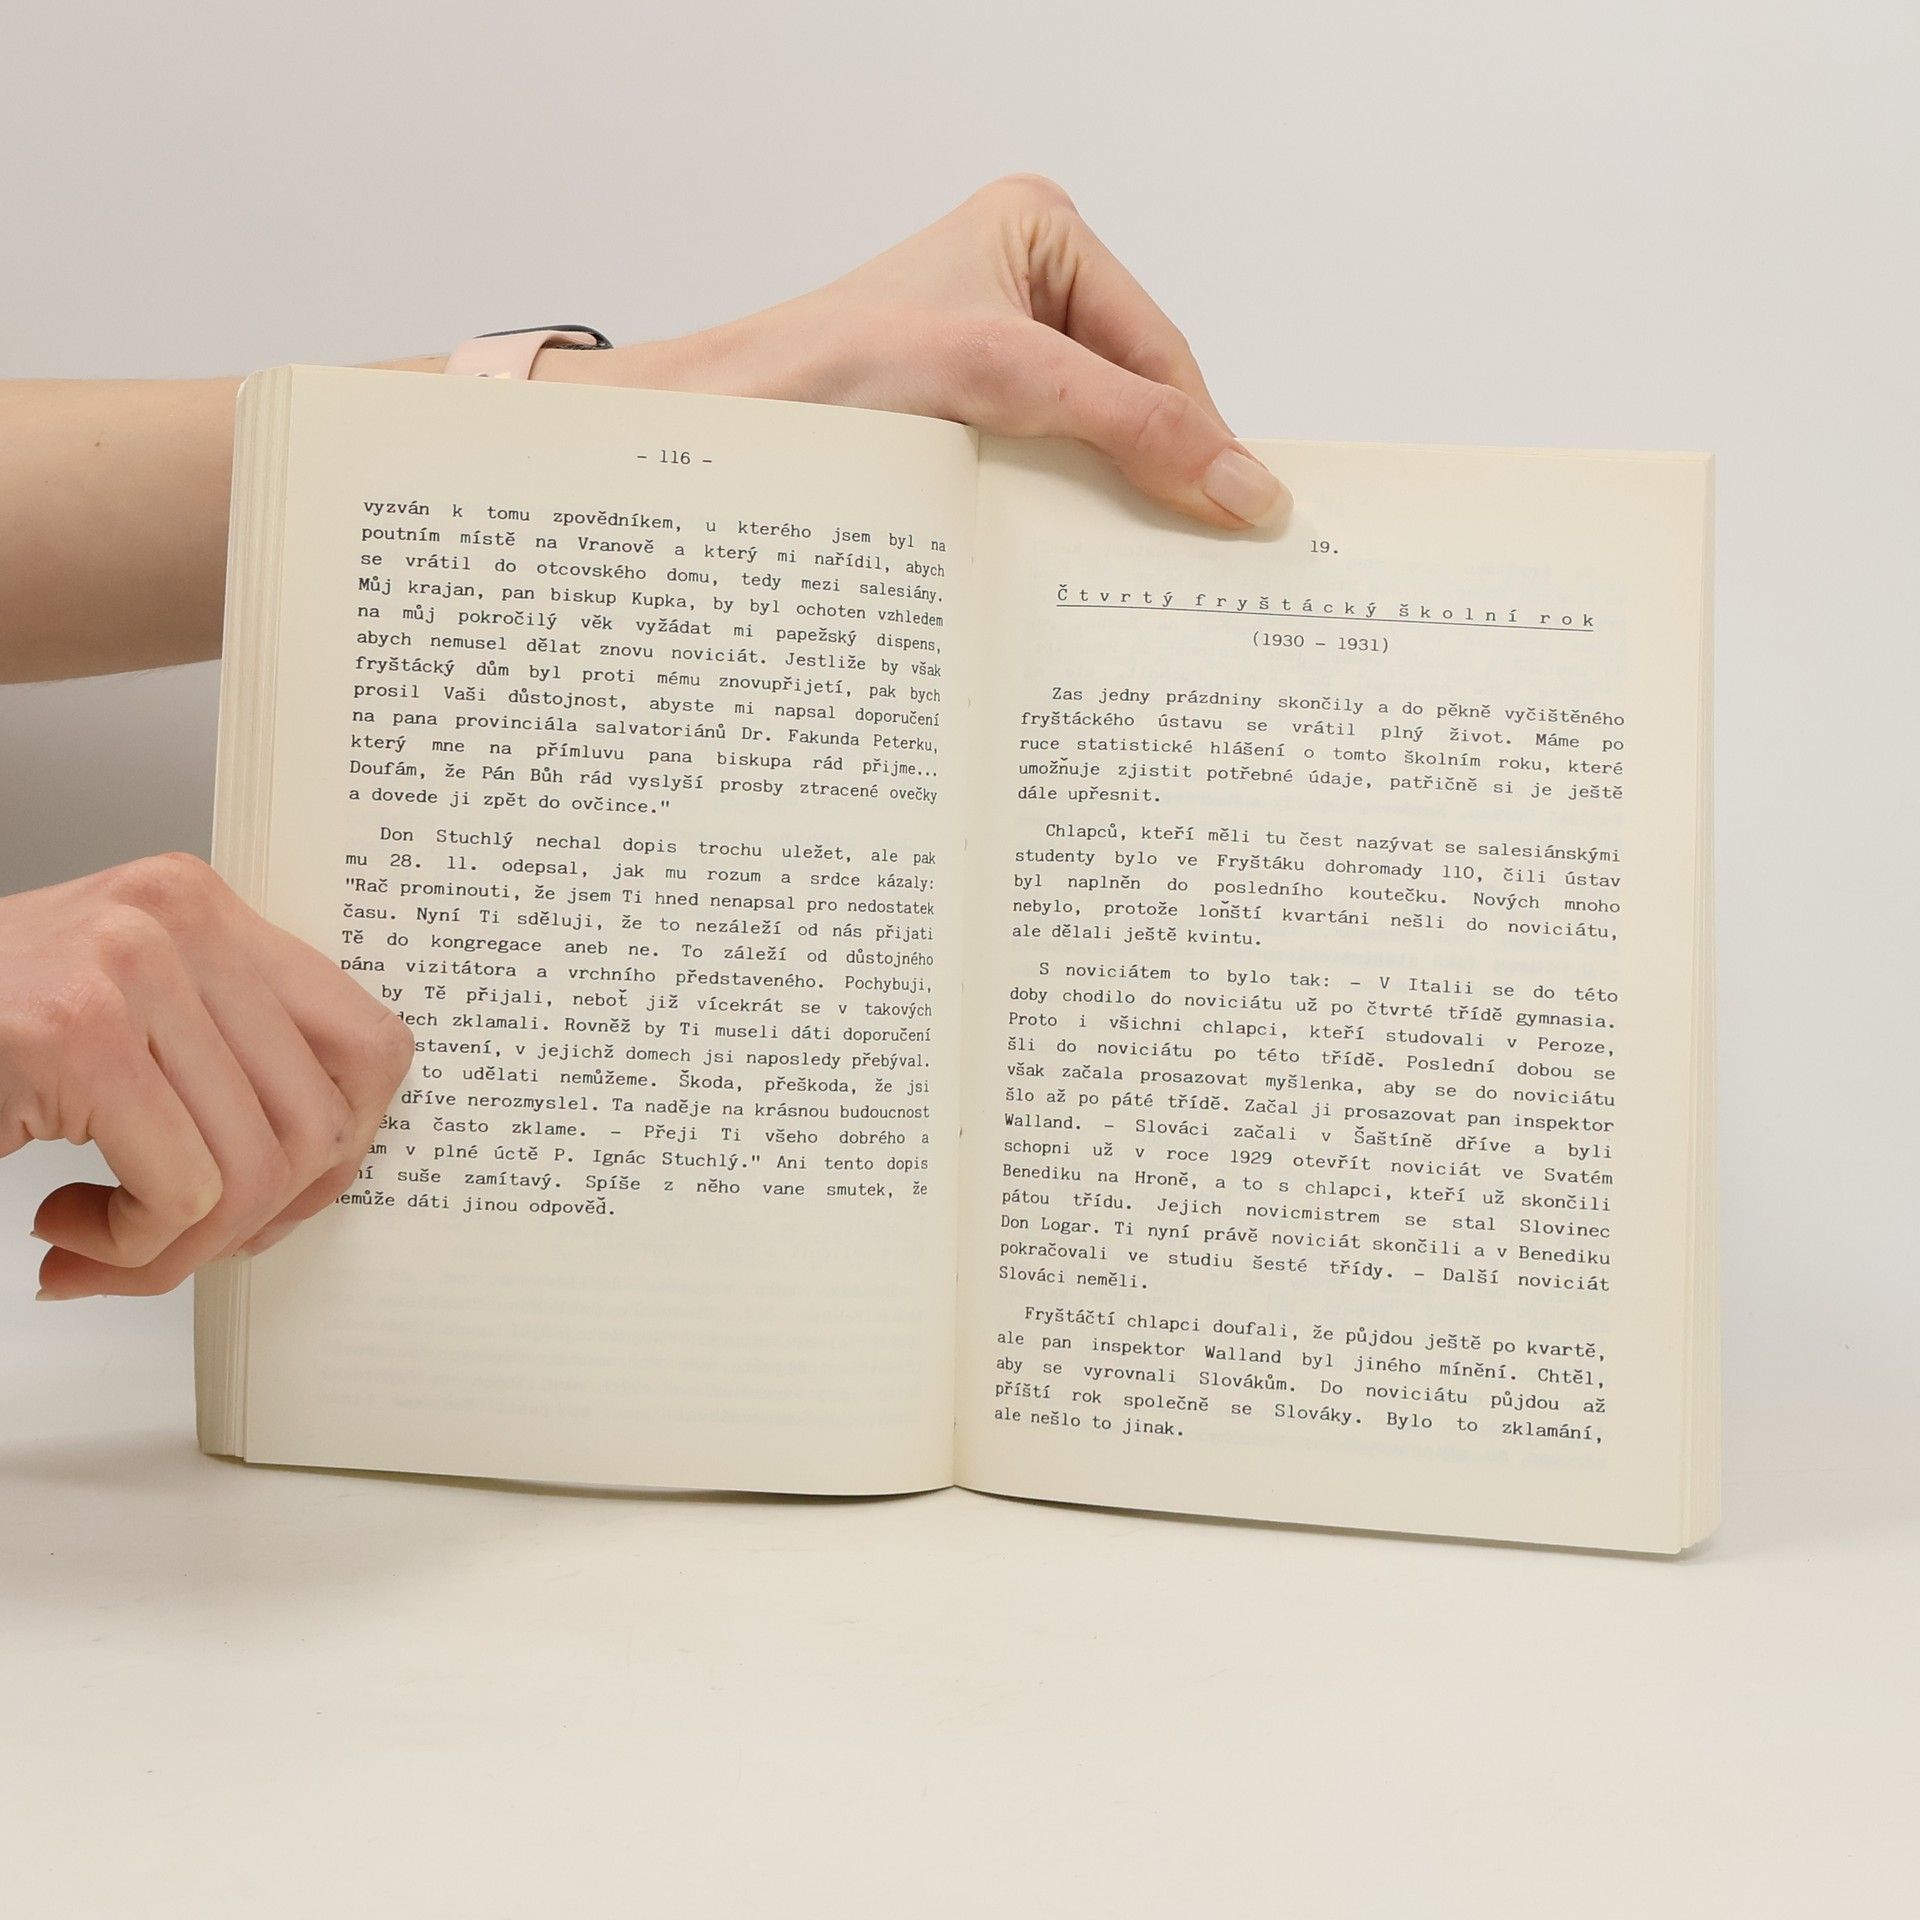 - 116 -
vyzván k tomu zpovědníkem, u kterého jsem byl na
poutním místě na Vranově a který mi nařídil, abych
se vrátil do otcovského domu, tedy mezi salesiány.
Můj krajan, pan biskup Kupka, by byl ochoten vzhledem
na můj pokročilý věk vyžádat mi papežský dispens,
abych nemusel dělat znovu noviciát. Jestliže by však
fryštácký dům byl proti mému znovupřijetí, pak bych
prosil Vaši důstojnost, abyste mi napsal doporučení
na pana provinciála salvatoriánů Dr. Fakunda Peterku,
který mne na přímluvu pana biskupa rád přijme...
Doufám, že Pán Bůh rád vyslyší prosby ztracené ovečky
a dovede ji zpět do ovčince."
Don Stuchlý nechal dopis trochu uležet, ale pak
mu 28. 11. odepsal, jak mu rozum a srdce kázaly:
"Rač prominouti, že jsem Ti hned nenapsal pro nedostatek
času. Nyní Ti sděluji, že to nezáleží od nás přijati
Tě do kongregace aneb ne. To záleží od důstojného
pána vizitátora a vrchního představeného. Pochybuji,
by Tě přijali, neboť již vícekrát se v takových
dech zklamali. Rovněž by Ti museli dáti doporučení
stavení, v jejichž domech jsi naposledy přebýval.
to udělati nemůžeme. Škoda, přeškoda, že jsi
dříve nerozmyslel. Ta naděje na krásnou budoucnost
éka často zklame. - Přeji Ti všeho dobrého a
ám v plné úctě P. Ignác Stuchlý." Ani tento dopis
ní suše zamítavý. Spíše z něho vane smutek, že
nemůže dáti jinou odpověď.
19.
Čtvrtý fryštácký školní rok
(1930 - 1931)
Zas jedny prázdniny skončily a do pěkně vyčištěného
fryštáckého ústavu se vrátil plný život. Máme po
ruce statistické hlášení o tomto školním roku, které
umožňuje zjistit potřebné údaje, patřičně si je ještě
dále upřesnit.
Chlapců, kteří měli tu čest nazývat se salesiánskými
studenty bylo ve Fryštáku dohromady 110, čili ústav
byl naplněn do posledního koutečku. Nových mnoho
nebylo, protože loňští kvartáni nešli do noviciátu,
ale dělali ještě kvintu.
S noviciátem to bylo tak: - V Italii se do této
doby chodilo do noviciátu už po čtvrté třídě gymnasia.
Proto i všichni chlapci, kteří studovali v Peroze,
šli do noviciátu po této třídě. Poslední dobou se
však začala prosazovat myšlenka, aby se do noviciátu
šlo až po páté třídě. Začal ji prosazovat pan inspektor
Walland. - Slováci začali v Šaštíně dříve a byli
schopni už v roce 1929 otevřít noviciát ve Svatém
Benediku na Hroně, a to s chlapci, kteří už skončili
pátou třídu. Jejich novicmistrem se stal Slovinec
Don Logar. Ti nyní právě noviciát skončili a v Benediku
pokračovali ve studiu šesté třídy. - Další noviciát
Slováci neměli.
Fryštáčtí chlapci doufali, že půjdou ještě po kvartě,
ale pan inspektor Walland byl jiného mínění. Chtěl,
aby se vyrovnali Slovákům. Do noviciátu půjdou až
příští rok společně se Slováky. Bylo to zklamání,
ale nešlo to jinak.